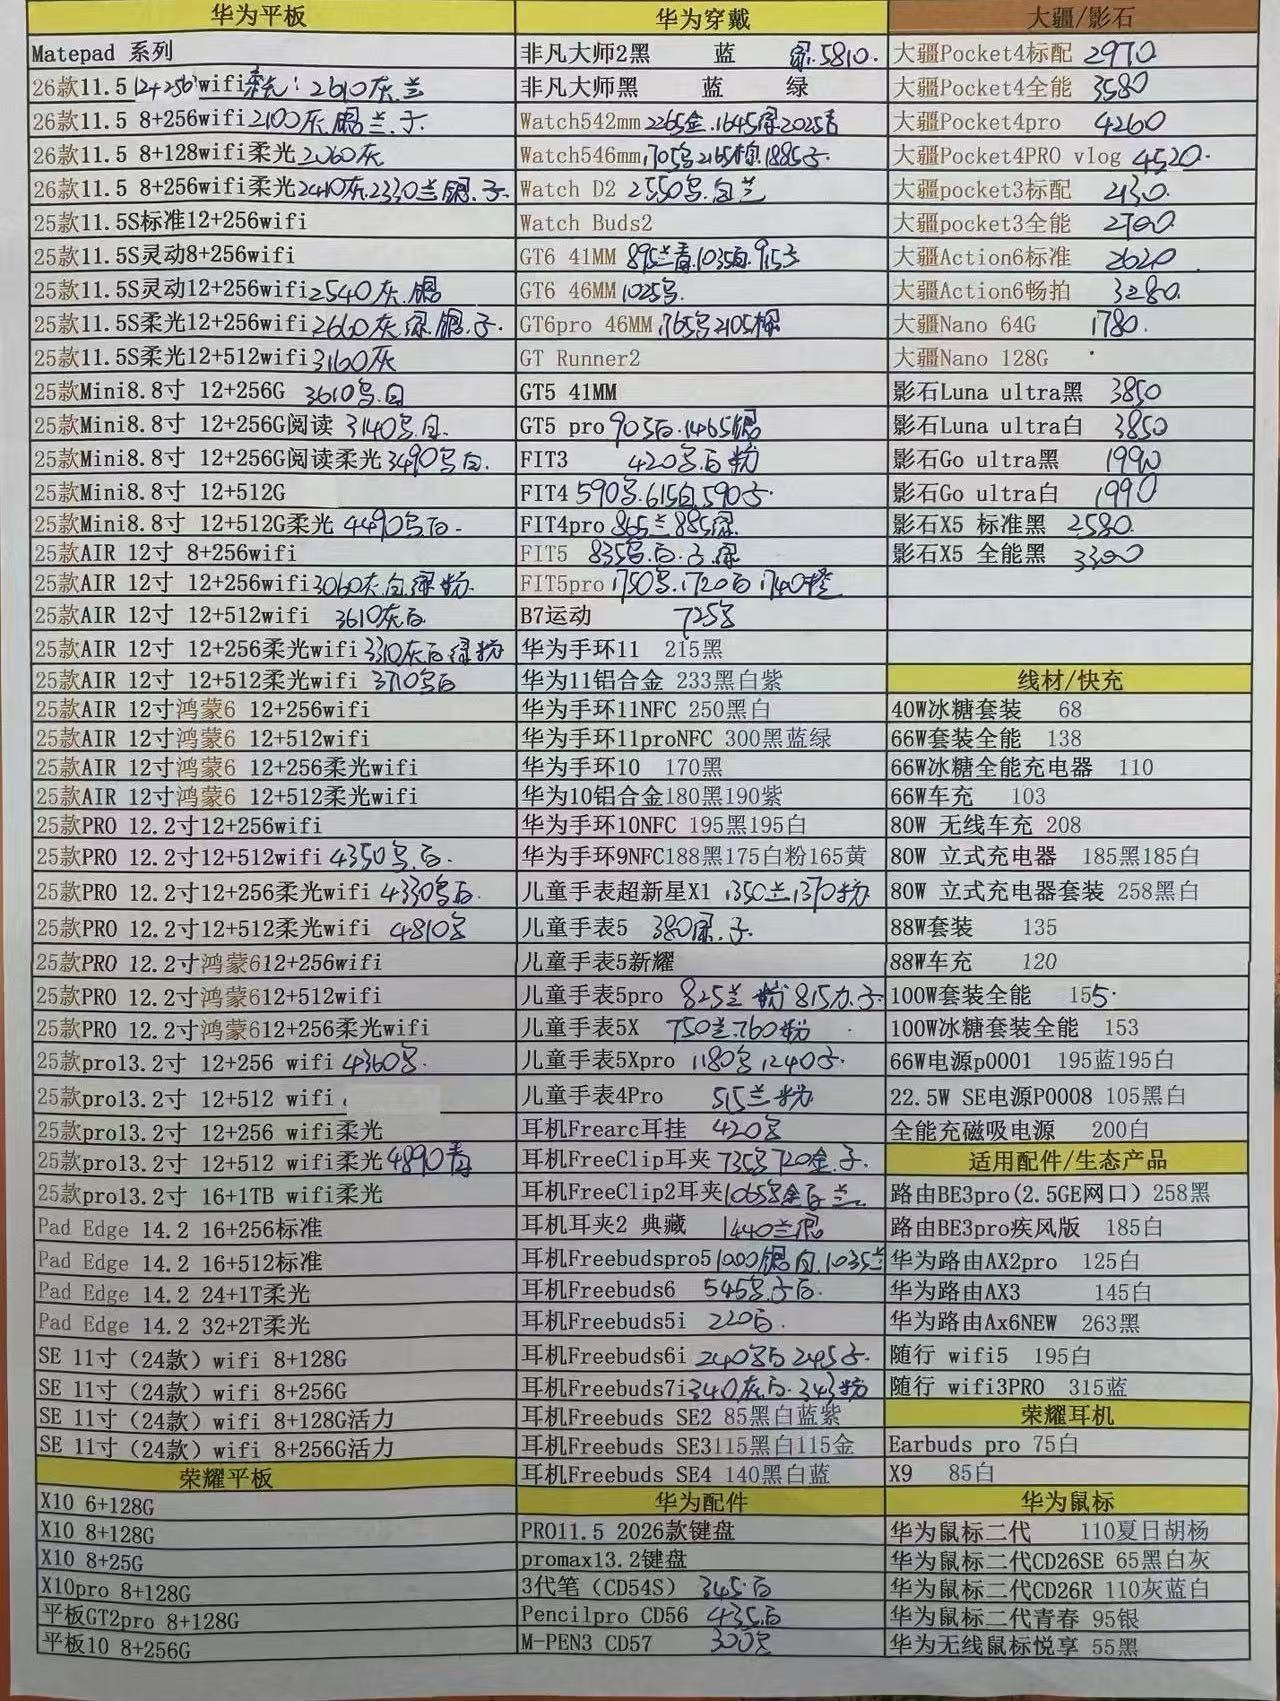 华为平板
Matepad 系列
26款11.5 12+256wifi柔光:2610灰.兰
26款11.5 8+256wifi2100灰.银兰.子.
26款11.5 8+128wifi柔光2060灰
26款11.5 8+256wifi柔光2410灰.2330兰银.子.
25款11.5S标准12+256wifi
25款11.5S灵动8+256wifi
25款11.5S灵动12+256wifi2540灰.银
25款11.5S柔光12+256wifi2660灰.绿.银.子.
25款11.5S柔光12+512wifi3160灰
25款Mini8.8寸 12+256G 3610黑.白
25款Mini8.8寸 12+256G阅读 3140黑.白.
25款Mini8.8寸 12+256G阅读柔光3490黑白.
25款Mini8.8寸 12+512G
25款Mini8.8寸 12+512G柔光 4490黑白.
25款AIR 12寸 8+256wifi
25款AIR 12寸 12+256wifi3060灰.白.绿粉.
25款AIR 12寸 12+512wifi 3610灰白
25款AIR 12寸 12+256柔光wifi 3310灰白绿粉
25款AIR 12寸 12+512柔光wifi 3710黑白
25款AIR 12寸鸿蒙6 12+256wifi
25款AIR 12寸鸿蒙6 12+512wifi
25款AIR 12寸鸿蒙6 12+256柔光wifi
25款AIR 12寸鸿蒙6 12+512柔光wifi
25款PRO 12.2寸12+256wifi
25款PRO 12.2寸12+512wifi 4350黑.白.
25款PRO 12.2寸12+256柔光wifi 4330黑白.
25款PRO 12.2寸12+512柔光wifi 4810黑
25款PRO 12.2寸鸿蒙612+256wifi
25款PRO 12.2寸鸿蒙612+512wifi
25款PRO 12.2寸鸿蒙612+256柔光wifi
25款pro13.2寸 12+256 wifi 4360黑.
25款pro13.2寸 12+512 wifi
25款pro13.2寸 12+256 wifi柔光
25款pro13.2寸 12+512 wifi柔光4890青
25款pro13.2寸 16+1TB wifi柔光
Pad Edge 14.2 16+256标准
Pad Edge 14.2 16+512标准
Pad Edge 14.2 24+1T柔光
Pad Edge 14.2 32+2T柔光
SE 11寸（24款）wifi 8+128G
SE 11寸（24款）wifi 8+256G
SE 11寸（24款）wifi 8+128G活力
SE 11寸（24款）wifi 8+256G活力
荣耀平板
X10 6+128G
X10 8+128G
X10 8+25G
X10pro 8+128G
平板GT2pro 8+128G
平板10 8+256G
华为穿戴
非凡大师2黑 蓝 绿.5810.
非凡大师黑 蓝 绿
Watch542mm 2265金.1645绿2025青
Watch546mm1705黑2165棕.1885子.
Watch D2 2550黑.白兰
Watch Buds2
GT6 41MM 895兰青.1035白.915子
GT6 46MM 1025黑.
GT6pro 46MM1765黑2105棕
GT Runner2
GT5 41MM
GT5 pro 905白.1465银
FIT3 420黑.白粉
FIT4 590黑.615白.590子.
FIT4pro 865兰885绿
FIT5 835黑.白.子.绿
FIT5pro 1750黑.1720白1740橙
B7运动 725黑
华为手环11 215黑
华为11铝合金 233黑白紫
华为手环11NFC 250黑白
华为手环11proNFC 300黑蓝绿
华为手环10 170黑
华为10铝合金180黑190紫
华为手环10NFC 195黑195白
华为手环9NFC188黑175白粉165黄
儿童手表超新星X1 1350兰1370粉
儿童手表5 380绿.子.
儿童手表5新耀
儿童手表5pro 825兰 粉815力.子
儿童手表5X 750兰.760粉
儿童手表5Xpro 1180黑1240子.
儿童手表4Pro 515兰粉
耳机Frearc耳挂 420黑
耳机FreeClip耳夹735黑720金.子.
耳机FreeClip2耳夹1065黑金白兰.
耳机耳夹2 典藏 1440兰银
耳机Freebudspro51000银白.1035兰
耳机Freebuds6 545黑子白.
耳机Freebuds5i 220白.
耳机Freebuds6i 240黑白245子.
耳机Freebuds7i340灰白.343粉
耳机Freebuds SE2 85黑白蓝紫
耳机Freebuds SE3115黑白115金
耳机Freebuds SE4 140黑白蓝
华为配件
PRO11.5 2026款键盘
promax13.2键盘
3代笔（CD54S） 345.白
Pencilpro CD56 435白
M-PEN3 CD57 300黑
大疆/影石
大疆Pocket4标配 2970
大疆Pocket4全能 3580
大疆Pocket4pro 4260
大疆Pocket4PRO vlog 4520.
大疆pocket3标配 2130.
大疆pocket3全能 2700
大疆Action6标准 2620
大疆Action6畅拍 3280.
大疆Nano 64G 1780.
大疆Nano 128G
影石Luna ultra黑 3850
影石Luna ultra白 3850
影石Go ultra黑 1990
影石Go ultra白 1990
影石X5 标准黑 2580.
影石X5 全能黑 3300
线材/快充
40W冰糖套装 68
66W套装全能 138
66W冰糖全能充电器 110
66W车充 103
80W 无线车充 208
80W 立式充电器 185黑185白
80W 立式充电器套装 258黑白
88W套装 135
88W车充 120
100W套装全能 155.
100W冰糖套装全能 153
66W电源p0001 195蓝195白
22.5W SE电源P0008 105黑白
全能充磁吸电源 200白
适用配件/生态产品
路由BE3pro(2.5GE网口）258黑
路由BE3pro疾风版 185白
华为路由AX2pro 125白
华为路由AX3 145白
华为路由Ax6NEW 263黑
随行 wifi5 195白
随行 wifi3PRO 315蓝
荣耀耳机
Earbuds pro 75白
X9 85白
华为鼠标
华为鼠标二代 110夏日胡杨
华为鼠标二代CD26SE 65黑白灰
华为鼠标二代CD26R 110灰蓝白
华为鼠标二代青春 95银
华为无线鼠标悦享 55黑